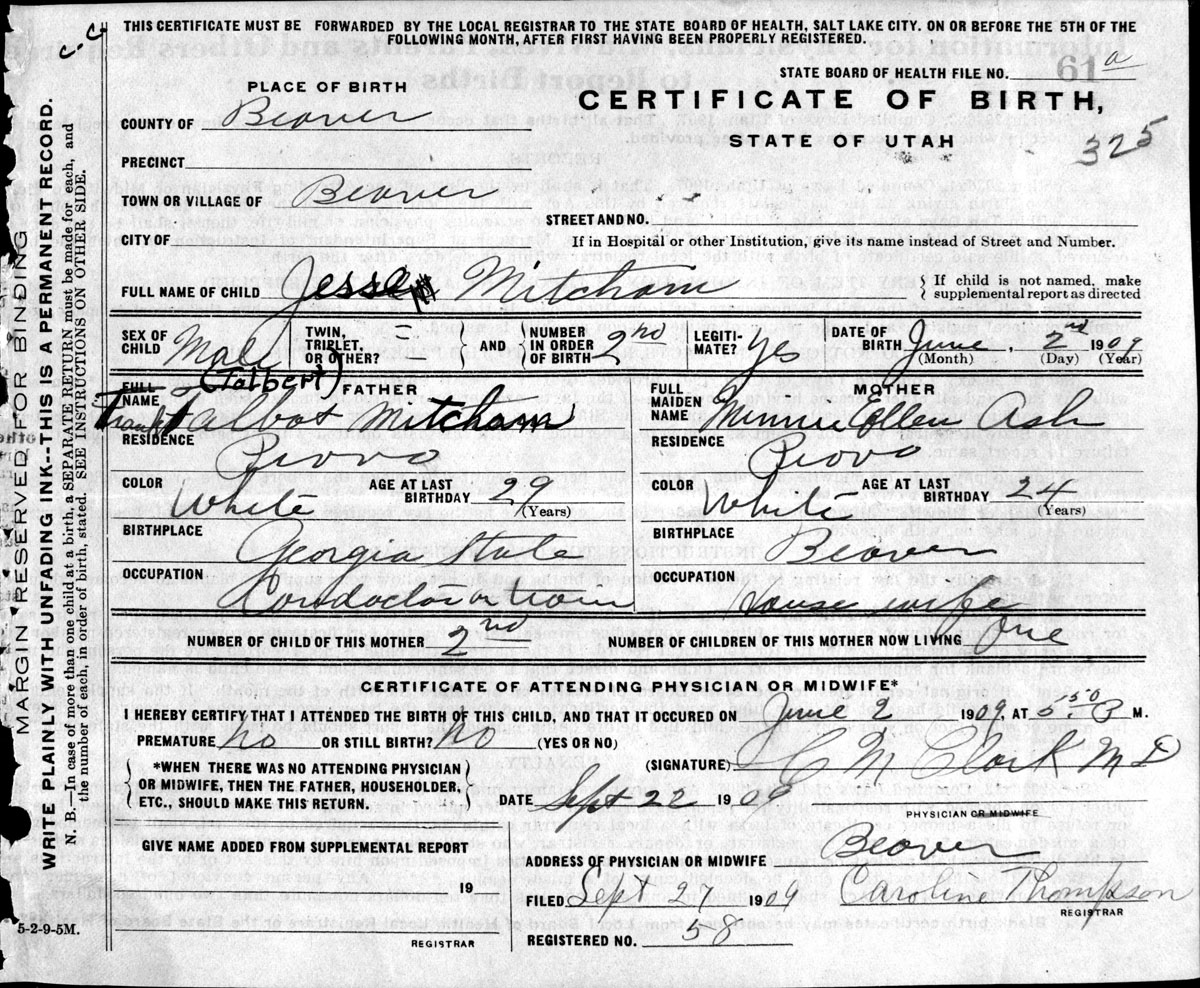 c.c
THIS CERTIFICATE MUST BE FORWARDED BY THE LOCAL REGISTRAR TO THE STATE BOARD OF HEALTH, SALT LAKE CITY. ON OR BEFORE THE 5TH OF THE
FOLLOWING MONTH, AFTER FIRST HAVING BEEN PROPERLY REGISTERED.
STATE BOARD OF HEALTH FILE NO. 61 a
PLACE OF BIRTH
CERTIFICATE OF BIRTH,
COUNTY OF Beaver
STATE OF UTAH
325
PRECINCT
TOWN OR VILLAGE OF Beaver
STREET AND NO.
CITY OF
If in Hospital or other Institution, give its name instead of Street and Number.
FULL NAME OF CHILD Jesse Mitcham
If child is not named, make
supplemental report as directed
SEX OF CHILD Male
TWIN, TRIPLET, OR OTHER? =
AND
NUMBER IN ORDER OF BIRTH 2nd
LEGITI- MATE? Yes
DATE OF BIRTH June, 2nd 1909
(Month) (Day) (Year)
FULL NAME
FATHER
(Talbert)
Frank Talbot Mitcham
FULL MAIDEN NAME
MOTHER
Minnie Ellen Ash
RESIDENCE
Provo
RESIDENCE
Provo
COLOR White
AGE AT LAST BIRTHDAY 29 (Years)
COLOR White
AGE AT LAST BIRTHDAY 24 (Years)
BIRTHPLACE
Georgia State
BIRTHPLACE
Beaver
OCCUPATION
Condoctor on train
OCCUPATION
House wife
NUMBER OF CHILD OF THIS MOTHER 2nd
NUMBER OF CHILDREN OF THIS MOTHER NOW LIVING One
CERTIFICATE OF ATTENDING PHYSICIAN OR MIDWIFE*
I HEREBY CERTIFY THAT I ATTENDED THE BIRTH OF THIS CHILD, AND THAT IT OCCURED ON June 2 1909, AT 5:50 P M.
PREMATURE No OR STILL BIRTH? No (YES OR NO)
*WHEN THERE WAS NO ATTENDING PHYSICIAN
OR MIDWIFE, THEN THE FATHER, HOUSEHOLDER,
ETC., SHOULD MAKE THIS RETURN.
(SIGNATURE) C M Clark M D
DATE Sept 22 1909
PHYSICIAN OR MIDWIFE
GIVE NAME ADDED FROM SUPPLEMENTAL REPORT
19
REGISTRAR
ADDRESS OF PHYSICIAN OR MIDWIFE Beaver
FILED Sept 27 1909 Caroline Thompson
REGISTRAR
REGISTERED NO. 58
5-2-9-5M.
MARGIN RESERVED FOR BINDING
WRITE PLAINLY WITH UNFADING INK--THIS IS A PERMANENT RECORD.
N. B.—In case of more than one child at a birth, a SEPARATE RETURN must be made for each, and
the number of each, in order of birth, stated. SEE INSTRUCTIONS ON OTHER SIDE.